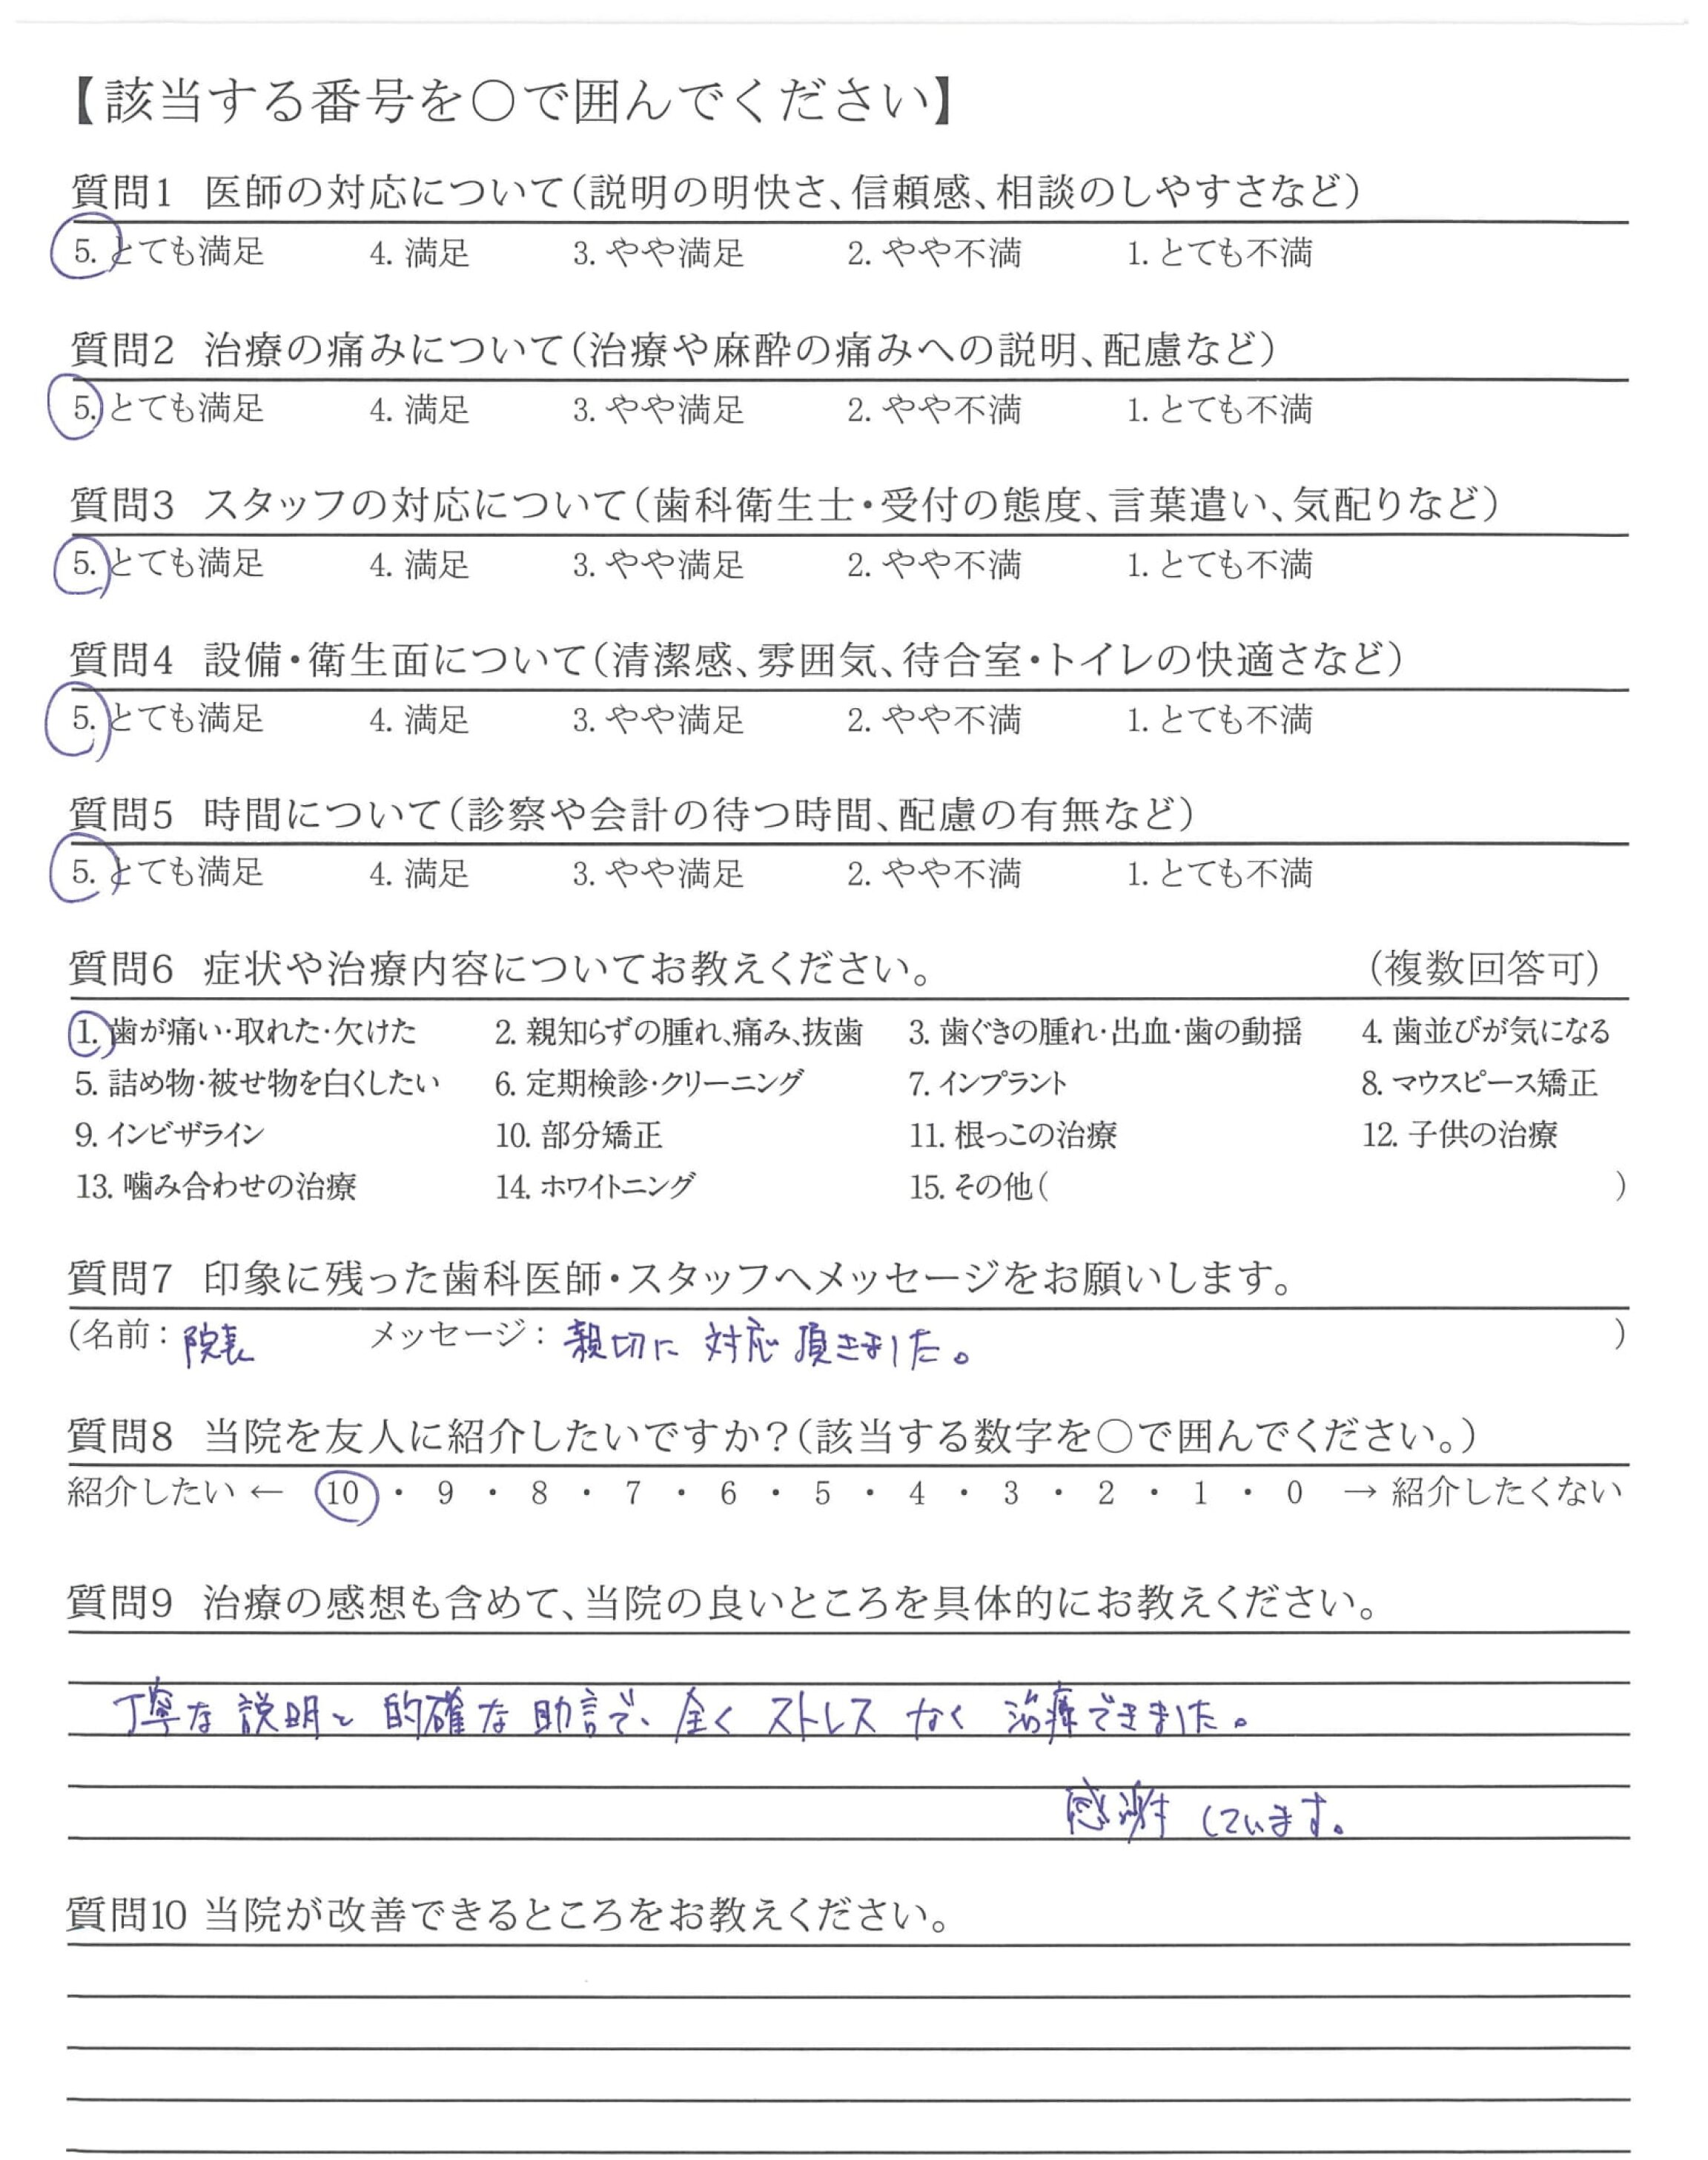 【該当する番号を○で囲んでください】
質問1 医師の対応について(説明の明快さ、信頼感、相談のしやすさなど)
5. とても満足 4. 満足 3. やや満足 2. やや不満 1. とても不満
質問2 治療の痛みについて(治療や麻酔の痛みへの説明、配慮など)
5. とても満足 4. 満足 3. やや満足 2. やや不満 1. とても不満
質問3 スタッフの対応について(歯科衛生士・受付の態度、言葉遣い、気配りなど)
5. とても満足 4. 満足 3. やや満足 2. やや不満 1. とても不満
質問4 設備・衛生面について(清潔感、雰囲気、待合室・トイレの快適さなど)
5. とても満足 4. 満足 3. やや満足 2. やや不満 1. とても不満
質問5 時間について(診察や会計の待つ時間、配慮の有無など)
5. とても満足 4. 満足 3. やや満足 2. やや不満 1. とても不満
質問6 症状や治療内容についてお教えください。 (複数回答可)
1. 歯が痛い・取れた・欠けた 2. 親知らずの腫れ、痛み、抜歯 3. 歯ぐきの腫れ・出血・歯の動揺 4. 歯並びが気になる
5. 詰め物・被せ物を白くしたい 6. 定期検診・クリーニング 7. インプラント 8. マウスピース矯正
9. インビザライン 10. 部分矯正 11. 根っこの治療 12. 子供の治療
13. 噛み合わせの治療 14. ホワイトニング 15. その他( )
質問7 印象に残った歯科医師・スタッフへメッセージをお願いします。
(名前: 院長 メッセージ: 親切に対応頂きました。 )
質問8 当院を友人に紹介したいですか?(該当する数字を○で囲んでください。)
紹介したい ← 10 ・ 9 ・ 8 ・ 7 ・ 6 ・ 5 ・ 4 ・ 3 ・ 2 ・ 1 ・ 0 → 紹介したくない
質問9 治療の感想も含めて、当院の良いところを具体的にお教えください。
丁寧な説明と的確な助言で、全くストレスなく治療できました。
感謝しています。
質問10 当院が改善できるところをお教えください。